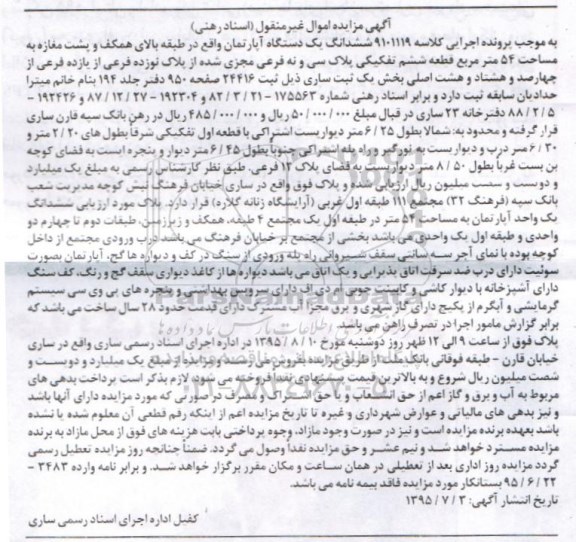 آگهی مزایده اموال غیرمنقول (اسناد رهنی)
به موجب پرونده اجرایی کلاسه ۹۱۰۱۱۱۹ ششدانگ یک دستگاه آپارتمان واقع در طبقه بالای همکف و پشت مغازه به
مساحت ۵۴ متر مربع قطعه ششم تفکیکی پلاک سی و نه فرعی مجزی شده از پلاک نوزده فرعی از یازده فرعی از
چهارصد و هشتاد و هشت اصلی بخش یک ثبت ساری ذیل ثبت ۲۴۴۱۶ صفحه ۹۵۰ دفتر جلد ۱۹۴ بنام خانم میترا
حدادیان سابقه ثبت دارد و برابر اسناد رهنی شماره ۱۷۵۵۶۳ - ۸۲/۳/۲۱ و ۱۹۲۳۰۴ - ۸۷/۱۲/۲۷ و ۱۹۲۴۲۶ -
۸۸/۲/۵ دفترخانه ۲۳ ساری در قبال مبلغ ۵۰/۰۰۰/۰۰۰ ریال و ۴۸۵/۰۰۰/۰۰۰ ریال در رهن بانک سپه قارن ساری
قرار گرفته و محدود به: شمالا بطول ۶/۲۵ متر دیواریست اشتراکی با قطعه اول تفکیکی شرقاً بطول های ۲/۲۰ متر و
۶/۳۰ متر درب و دیواریست به نورگیر و راه پله اشتراکی جنوباً بطول ۶/۴۵ متر دیوار و پنجره ایست به فضای کوچه
بن بست غرباً بطول ۸/۵۰ متر دیواریست به فضای پلاک ۱۲ فرعی. طبق نظر کارشناس رسمی به مبلغ یک میلیارد
و دویست و شصت میلیون ریال ارزیابی شده و پلاک فوق واقع در ساری خیابان فرهنگ نبش کوچه مدیریت شعب
بانک سپه (فرهنگ ۳۲) مجتمع ۱۱۱ طبقه اول غربی (آرایشگاه زنانه گلاره) قرار دارد. پلاک مورد ارزیابی ششدانگ
یک واحد آپارتمان به مساحت ۵۴ متر در طبقه اول یک مجتمع ۴ طبقه، همکف و زیرزمین، طبقات دوم تا چهارم دو
واحدی و طبقه اول یک واحدی می باشد بخشی از مجتمع بر خیابان فرهنگ می باشد درب ورودی مجتمع از داخل
کوچه بوده با نمای آجر سه سانتی سقف شیروانی راه پله ورودی از سنگ در کف و دیواره ها گچ، آپارتمان بصورت
سوئیت دارای درب ضد سرقت اتاق پذیرایی و یک اتاق می باشد دیواره ها از کاغذ دیواری سقف گچ و رنگ، کف سنگ
دارای آشپزخانه با دیوار کاشی و کابینت چوبی ام دی اف دارای سرویس بهداشتی و پنجره های پی وی سی سیستم
گرمایشی و آبگرم از پکیج دارای گاز شهری و برق مجزا آب مشترک دارای قدمت حدود ۲۸ سال ساخت می باشد که
برابر گزارش مامور اجرا در تصرف راهن می باشد.
پلاک فوق از ساعت ۹ الی ۱۲ ظهر روز دوشنبه مورخ ۱۳۹۵/۸/۱۰ در اداره اجرای اسناد رسمی ساری واقع در ساری
خیابان قارن - طبقه فوقانی بانک ملت از طریق مزایده بفروش می رسد. مزایده از مبلغ یک میلیارد و دویست و
شصت میلیون ریال شروع و به بالاترین قیمت پیشنهادی نقدا فروخته می شود. لازم بذکر است پرداخت بدهی های
مربوط به آب و برق و گاز اعم از حق انشعاب و یا حق اشتراک و مصرف در صورتی که مورد مزایده دارای آنها باشد
و نیز بدهی های مالیاتی و عوارض شهرداری و غیره تا تاریخ مزایده اعم از اینکه رقم قطعی آن معلوم شده یا نشده
باشد بعهده برنده مزایده است و نیز در صورت وجود مازاد، وجوه پرداختی بابت هزینه های فوق از محل مازاد به برنده
مزایده مسترد خواهد شد و نیم عشر و حق مزایده نقداً وصول می گردد. ضمناً چنانچه روز مزایده تعطیل رسمی
گردد مزایده روز اداری بعد از تعطیلی در همان ساعت و مکان مقرر برگزار خواهد شد. و برابر نامه وارده ۳۴۸۳ -
۹۵/۶/۲۲ بستانکار مورد مزایده فاقد بیمه نامه می باشد.
تاریخ انتشار آگهی: ۱۳۹۵/۷/۳
کفیل اداره اجرای اسناد رسمی ساری